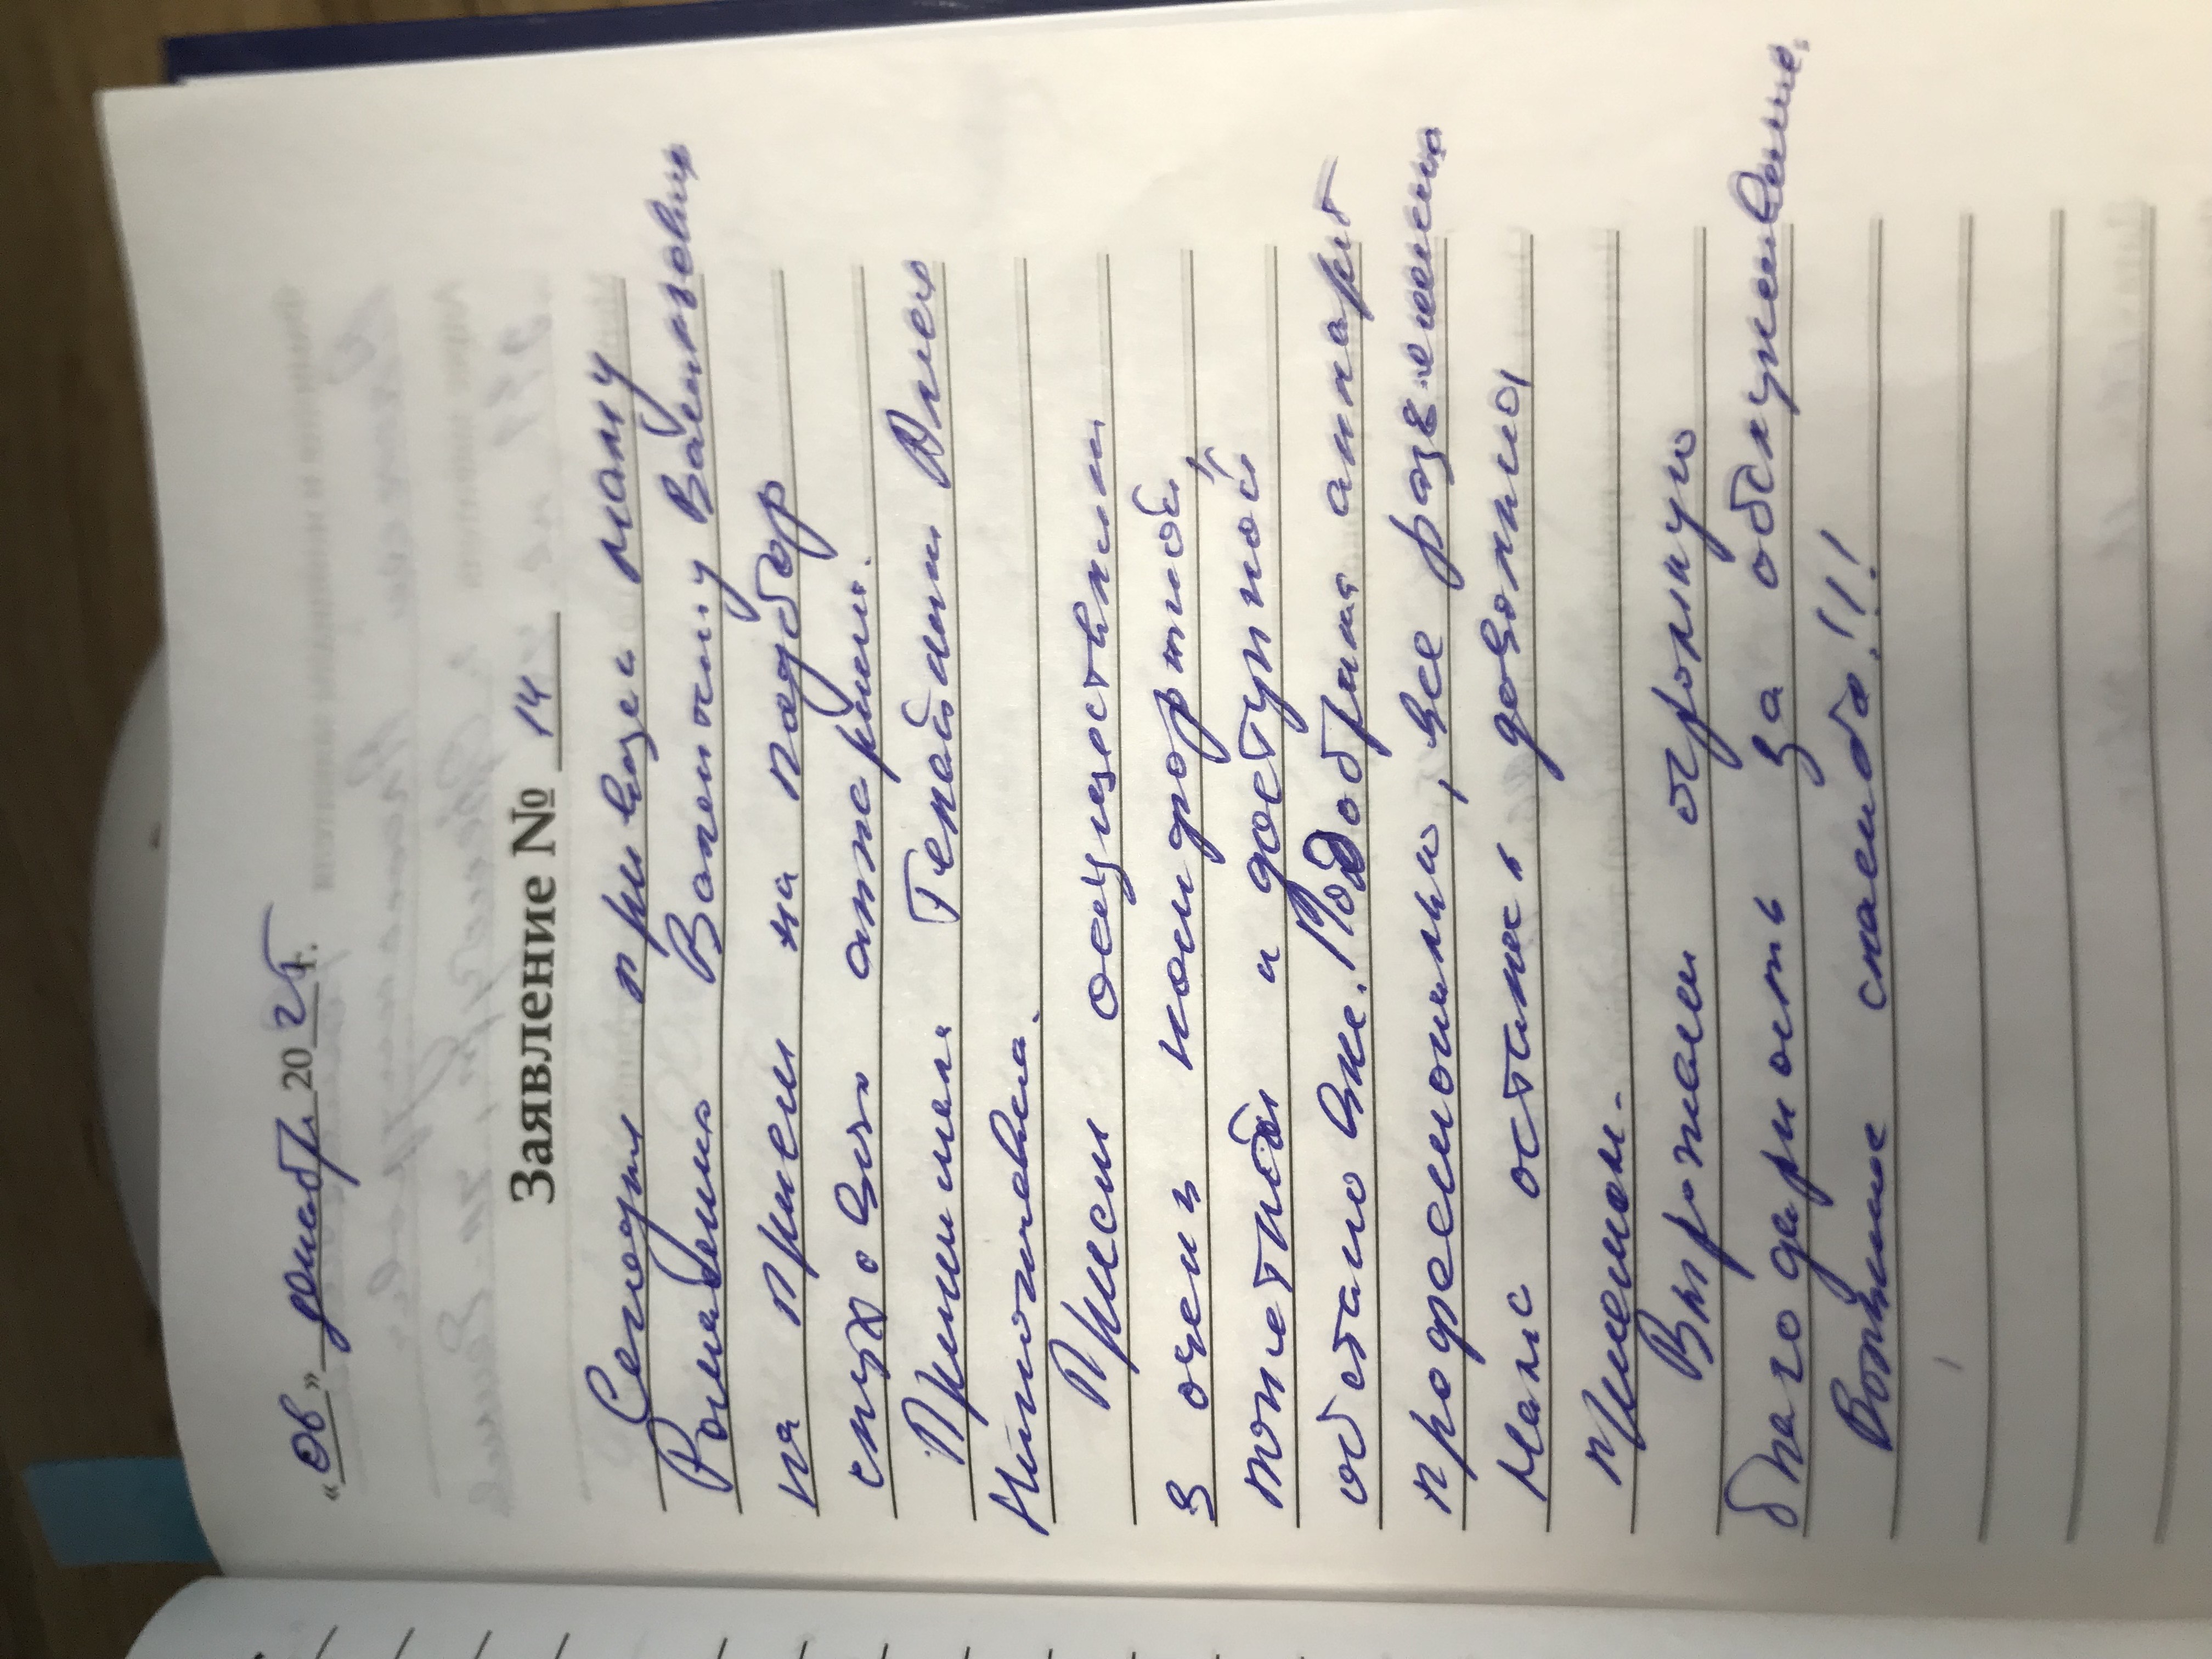 «08» декабр. 2025 г.
Заявление № 14
Сегодня привезла маму
Валентину
на прием на подбор
слухового аппарата.
Принимала Алех
Николаевна.
Прием осуществлен
в очень комфортной,
понятной и доступной
обстановке. Подобрали аппарат
профессионально, все разъяснили
Мама осталась довольна
приемом.
Выражаем огромную
благодарность за обслуживание.
Большое спасибо!!!